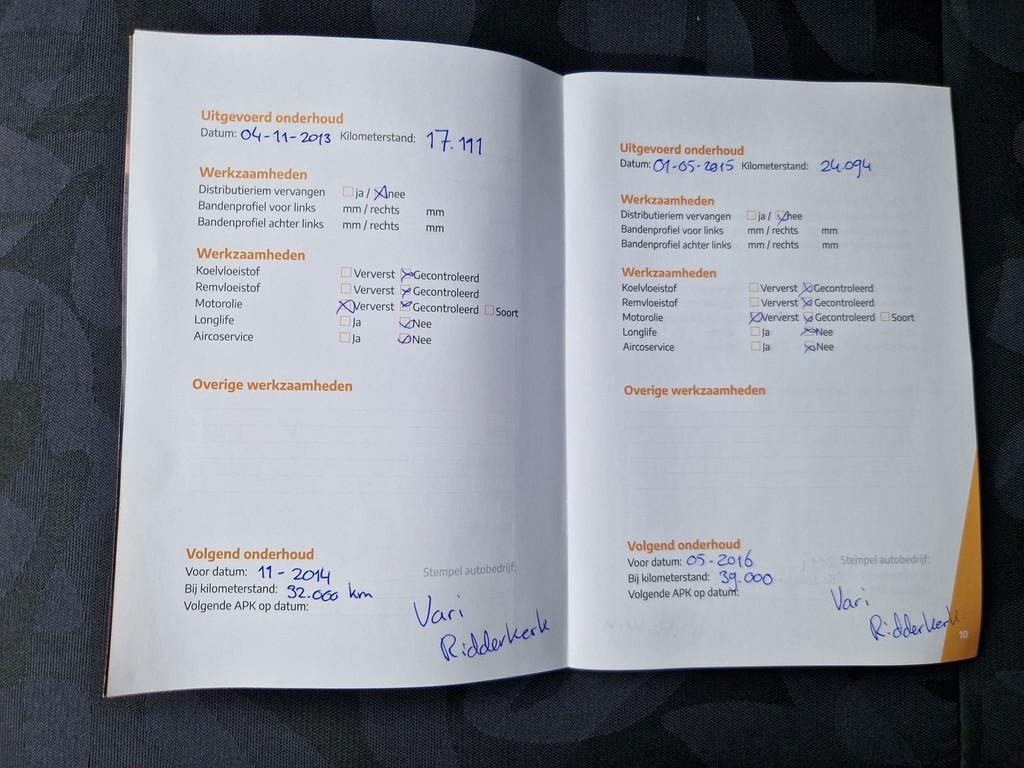 Uitgevoerd onderhoud
Datum: 04-11-2013 Kilometerstand: 17.111
Werkzaamheden
Distributieriem vervangen ja / nee
Bandenprofiel voor links mm / rechts mm
Bandenprofiel achter links mm / rechts mm
Werkzaamheden
Koelvloeistof Ververst Gecontroleerd
Remvloeistof Ververst Gecontroleerd
Motorolie Ververst Gecontroleerd Soort
Longlife Ja Nee
Aircoservice Ja Nee
Overige werkzaamheden
Volgend onderhoud
Voor datum: 11-2014 Stempel autobedrijf:
Bij kilometerstand: 32.000 km
Volgende APK op datum:
Vari
Ridderkerk
Uitgevoerd onderhoud
Datum: 01-05-2015 Kilometerstand: 24.094
Werkzaamheden
Distributieriem vervangen ja / nee
Bandenprofiel voor links mm / rechts mm
Bandenprofiel achter links mm / rechts mm
Werkzaamheden
Koelvloeistof Ververst Gecontroleerd
Remvloeistof Ververst Gecontroleerd
Motorolie Ververst Gecontroleerd Soort
Longlife Ja Nee
Aircoservice Ja Nee
Overige werkzaamheden
Volgend onderhoud
Voor datum: 05-2016 Stempel autobedrijf:
Bij kilometerstand: 39.000
Volgende APK op datum:
Vari
Ridderkerk
10